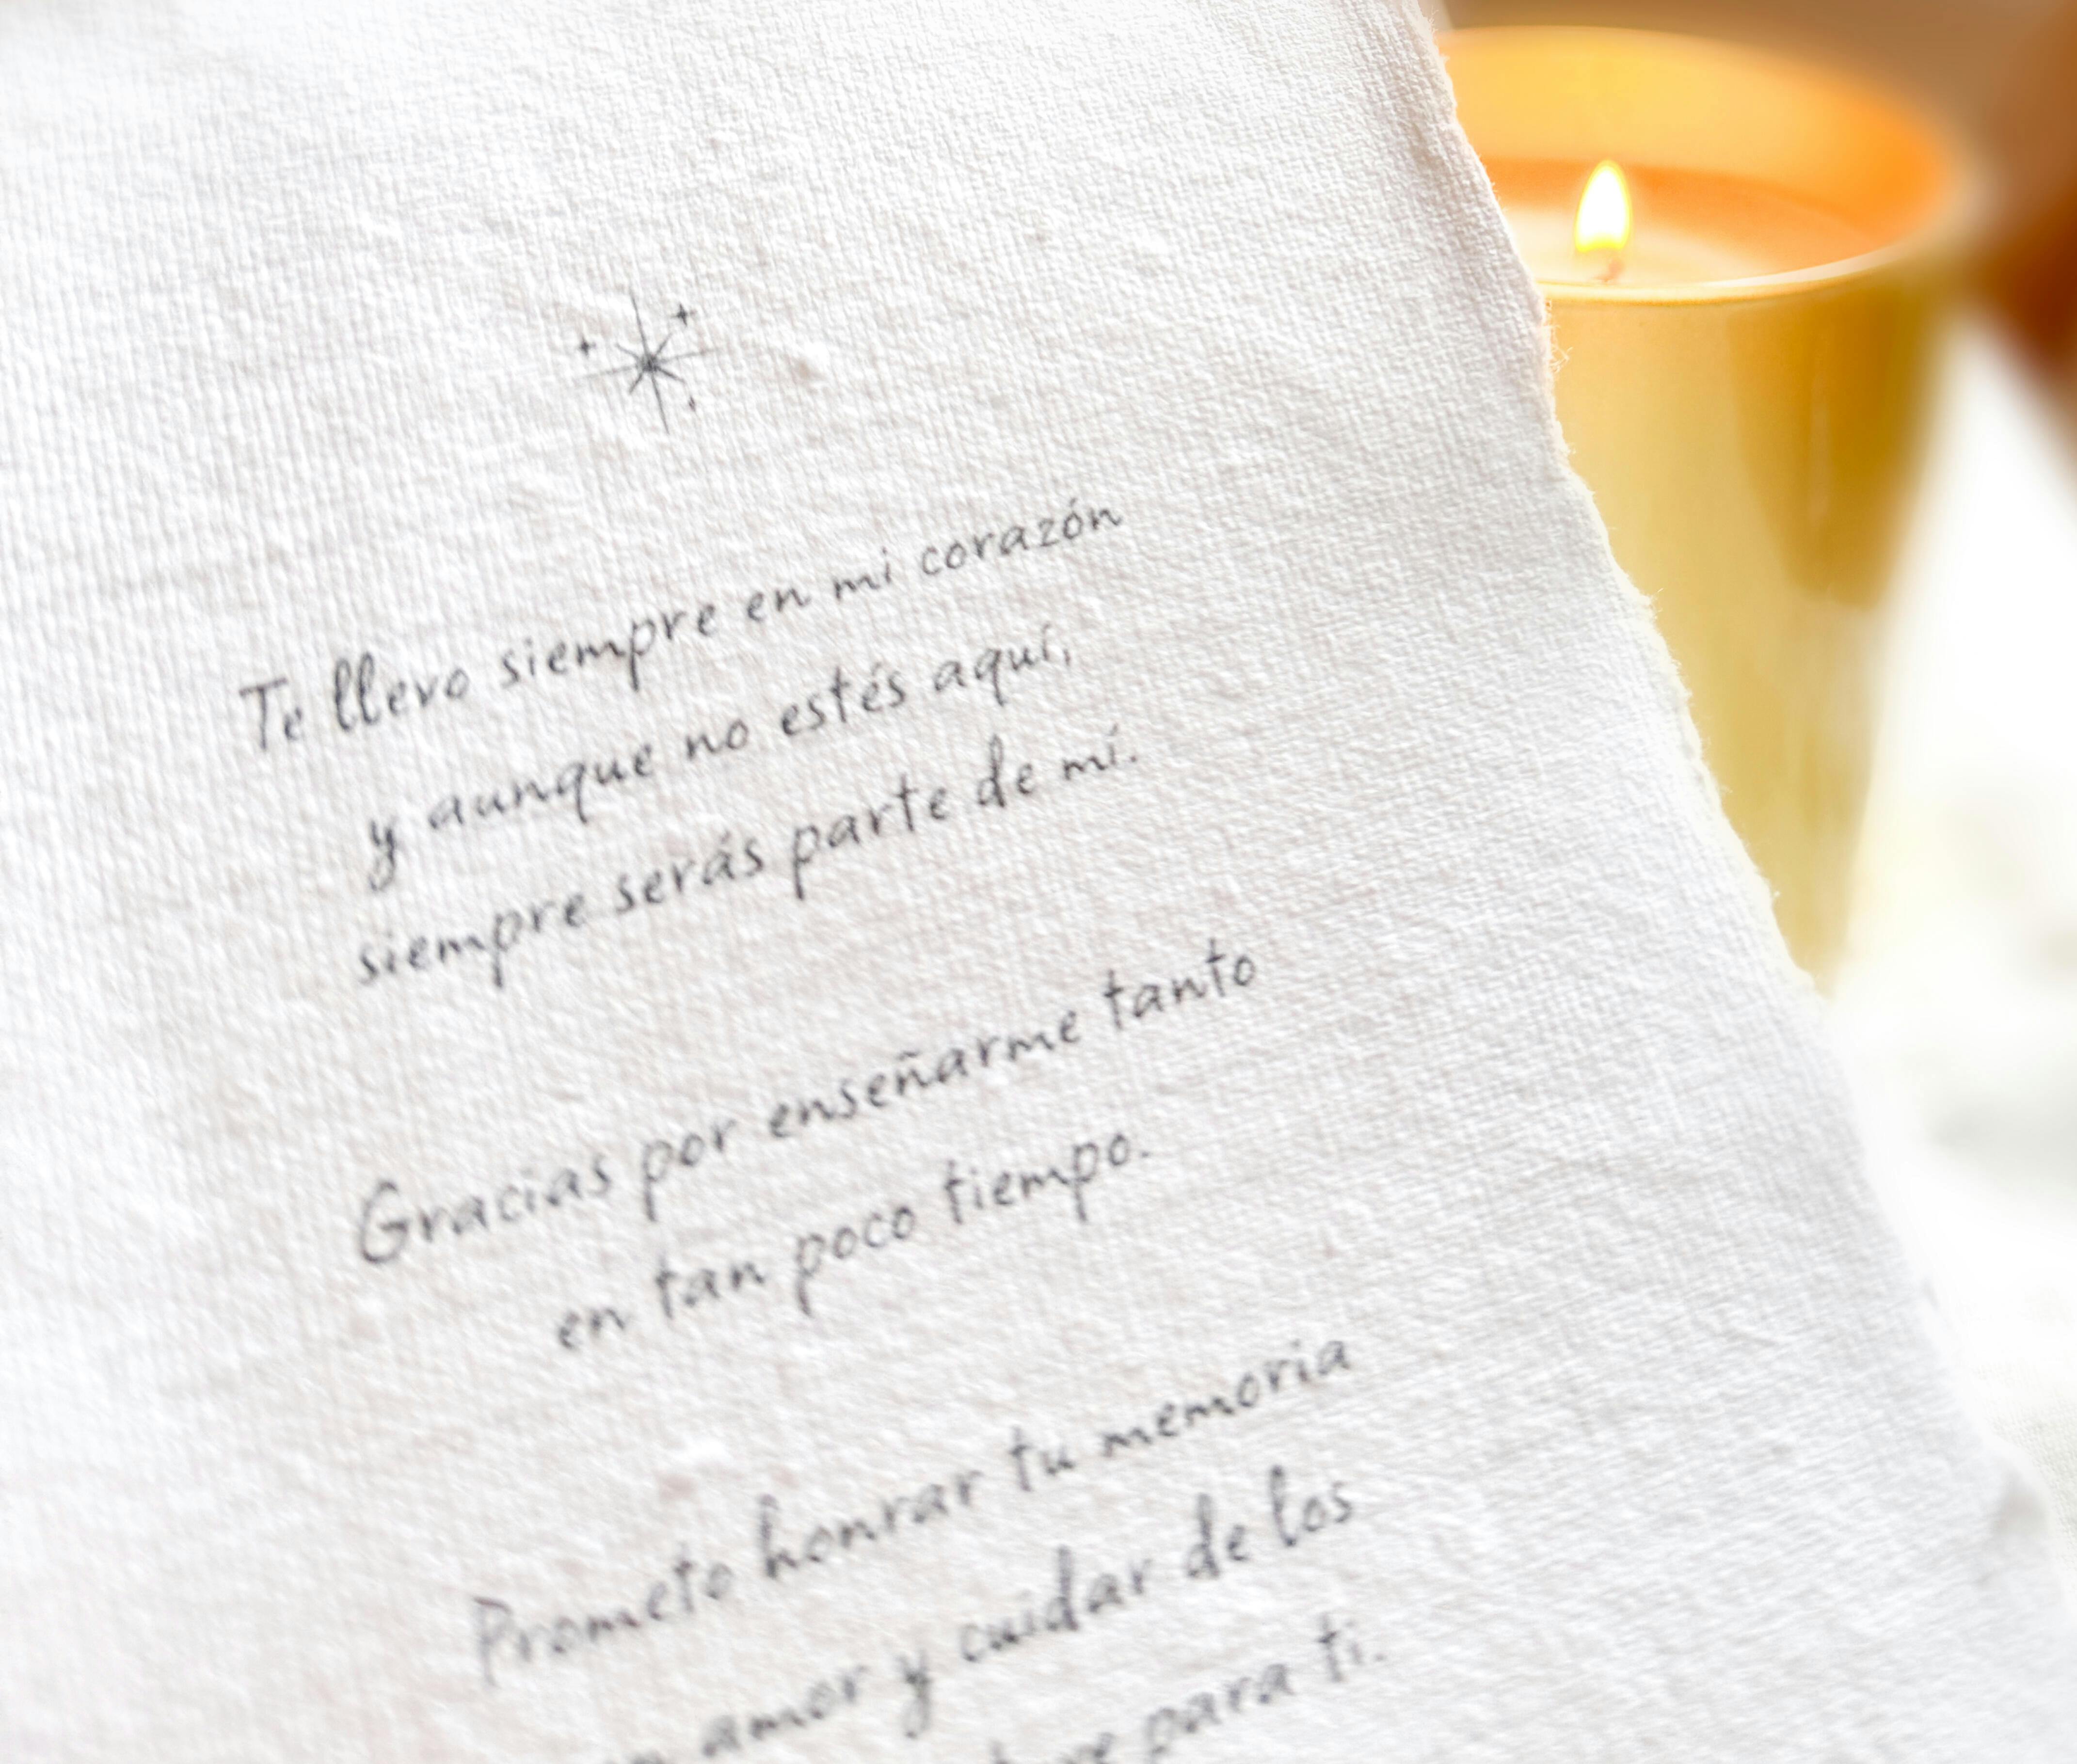 Te llevo siempre en mi corazón
y aunque no estés aquí,
siempre serás parte de mí.
Gracias por enseñarme tanto
en tan poco tiempo.
Prometo honrar tu memoria
amor y cuidar de los
para ti.